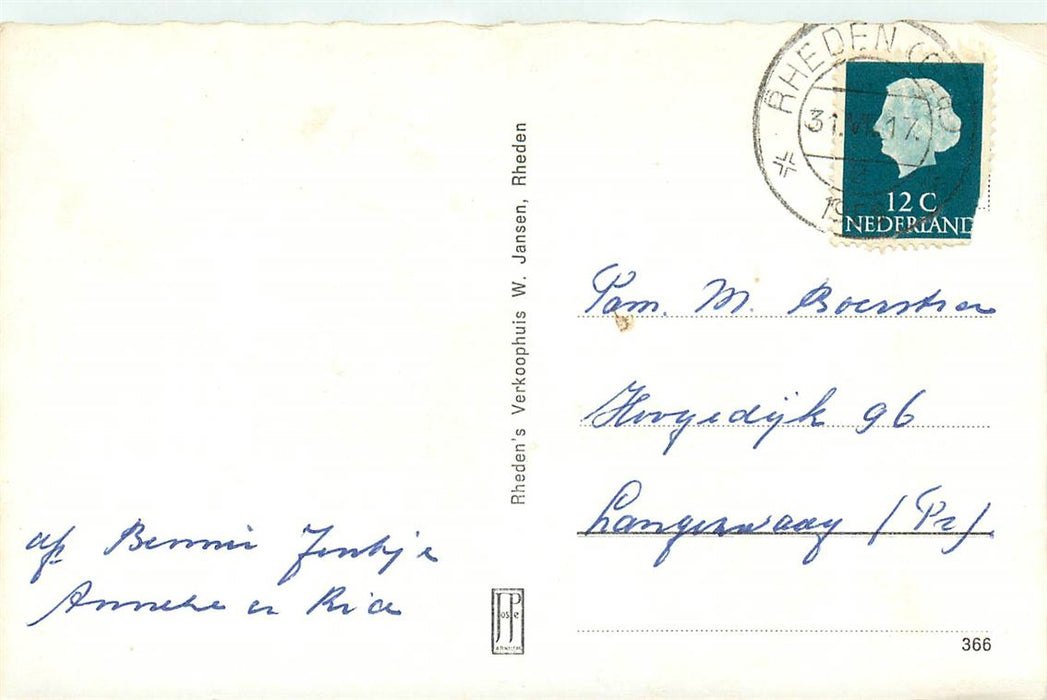 RHEDEN (GLD)
31.VII.17.
12 C
NEDERLAND
Rheden's Verkoophuis W. Jansen, Rheden
Fam. M. Boerstra
Hoogedijk 96
Langezwaag (Fr)
afz Bennie Jentsje
Anneke en Ria
JosPé
ARNHEM
366